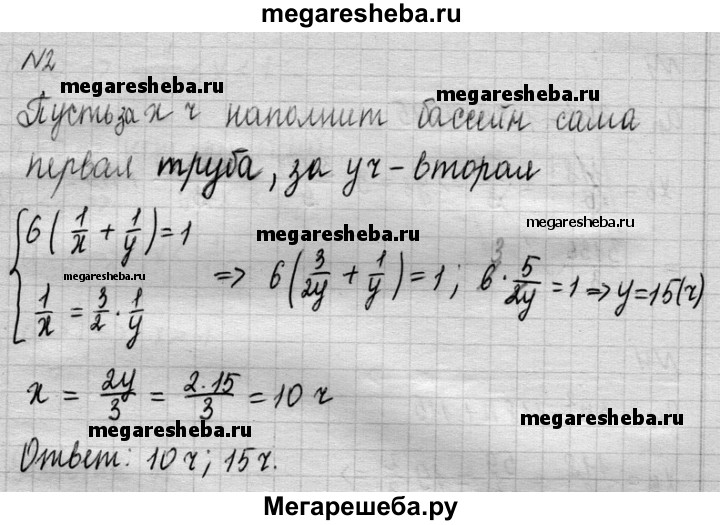 megaresheba.ru
N2
megaresheba.ru megaresheba.ru
Пусть за x ч наполнит бассейн сама
первая труба, за y ч - вторая
megaresheba.ru megaresheba.ru
{ 6(1/x + 1/y) = 1
megaresheba.ru
1/x = 3/2 · 1/y
=> 6(3/2y + 1/y) = 1; 6 · 5/2y = 1 => y = 15(ч)
3
megaresheba.ru megaresheba.ru
x = 2y/3 = 2·15/3 = 10 ч
megaresheba.ru megaresheba.ru
Ответ: 10 ч; 15 ч.
Мегарешеба.ру